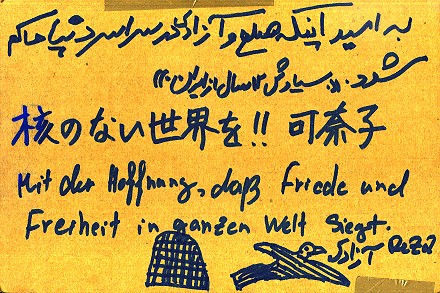 به امید اینکه صلح و آزادی در سراسر دنیا حاکم
شود. سیاوش ۱۲ ساله از ایران
核のない世界を!! 可奈子
Mit der Hoffnung, daß Friede und
Freiheit in ganzen Welt Siegt.
آزادی Reza